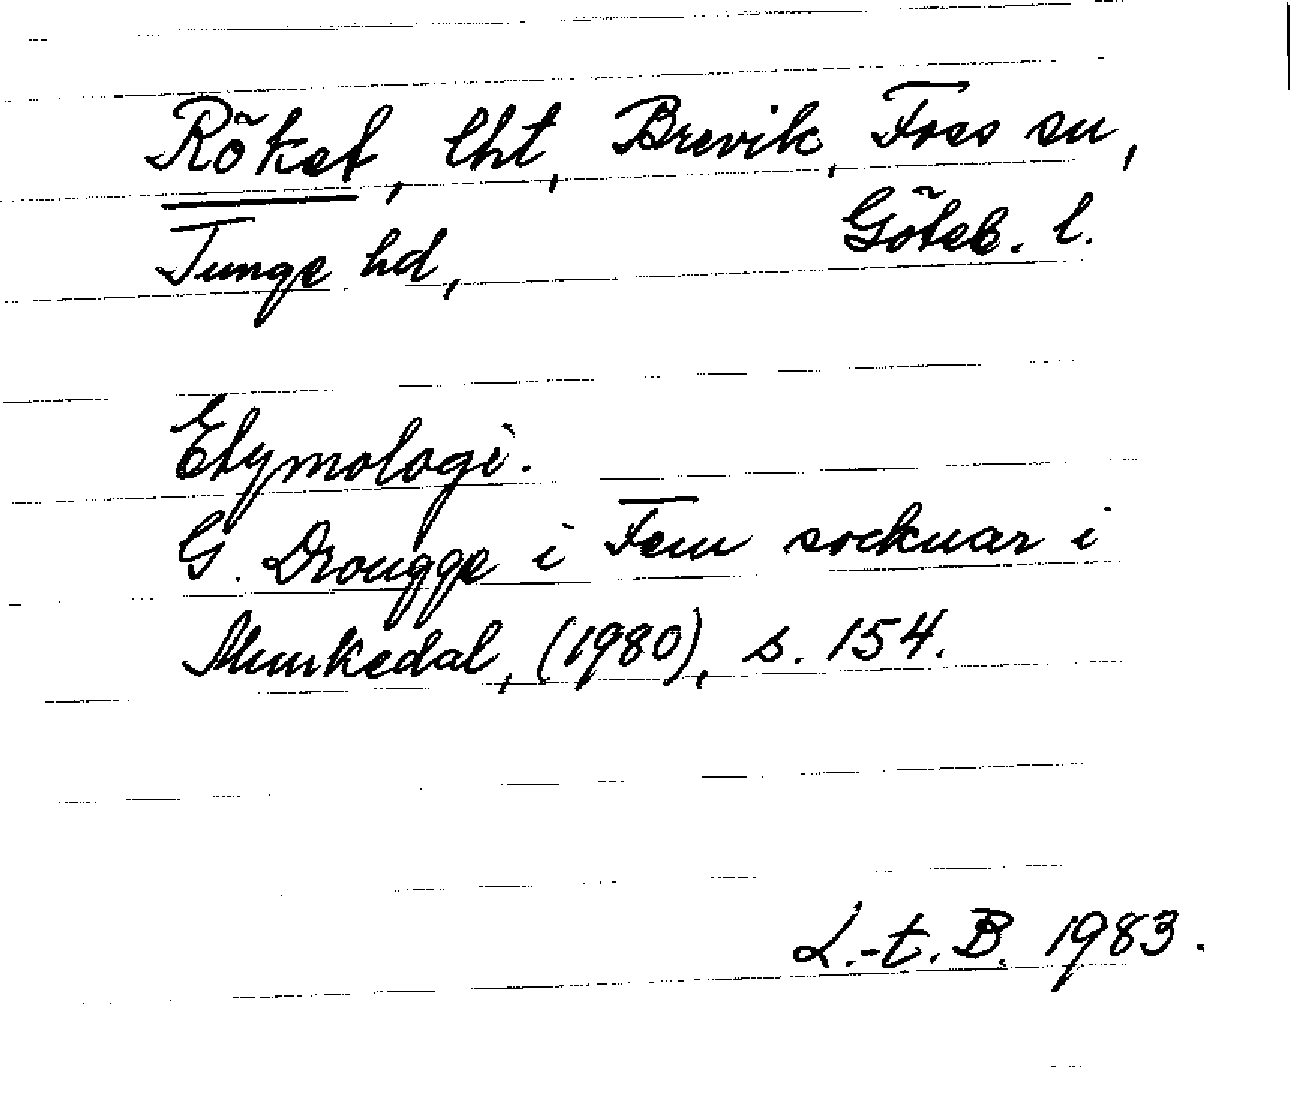 Röket, lht, Brevik, Foss sn,
Tunge hd, Göteb. l.
Etymologi.
G. Drougge i Fem socknar i
Munkedal, (1980), s. 154.
L.-t. B. 1983.